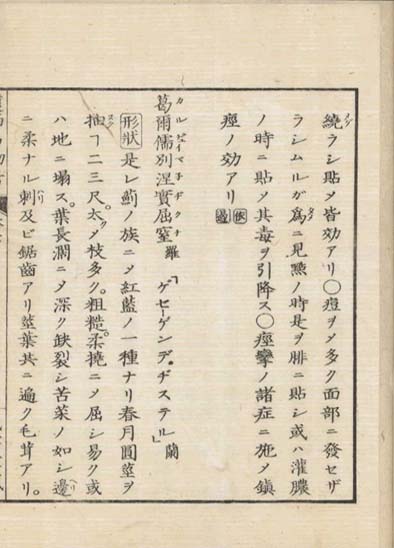 繞ラシ貼〆皆効アリ〇痘ヲ〆多ク面部ニ發セザ
ラシムルガ爲ニ見㸃ノ時是ヲ腓ニ貼シ或ハ灌膿
ノ時ニ貼〆其毒ヲ引降ス〇痙攣ノ諸症ニ施〆鎮
痙ノ効アリ
カルヂイマチヂクナ
葛爾儒別涅實屈窒 羅 「ゲセーゲンデ、ヂステル」蘭
形狀 是レ薊ノ族ニ〆紅藍ノ一種ナリ春月圓莖ヲ
抽ヿ二三尺。太〆枝多ク。粗糙。柔撓ニ〆屈シ易ク或
ハ地ニ塌ス。葉長濶ニ〆深ク缺裂シ苦菜ノ如シ邊
ニ柔ナル刺及ビ鋸齒アリ莖葉共ニ遍ク毛茸アリ。